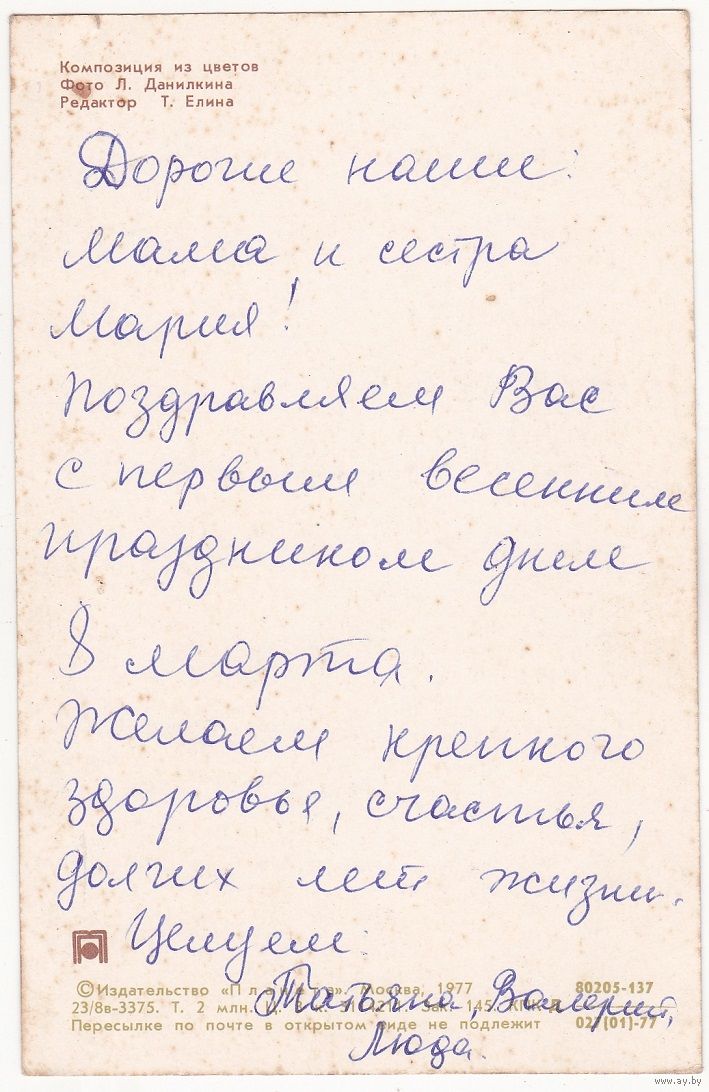 Композиция из цветов
Фото Л. Данилкина
Редактор Т. Елина
Дорогие наши:
Мама и сестра
Мария!
Поздравляем Вас
с первым весенним
праздником днем
8 марта.
Желаем крепкого
здоровья, счастья,
долгих лет жизни.
Целуем:
Татьяна, Валерий,
Люда.
©Издательство «Планета». Москва, 1977 80205-137
23/8в-3375. Т. 2 млн. 027(01)-77
Пересылке по почте в открытом виде не подлежит
www.ay.by